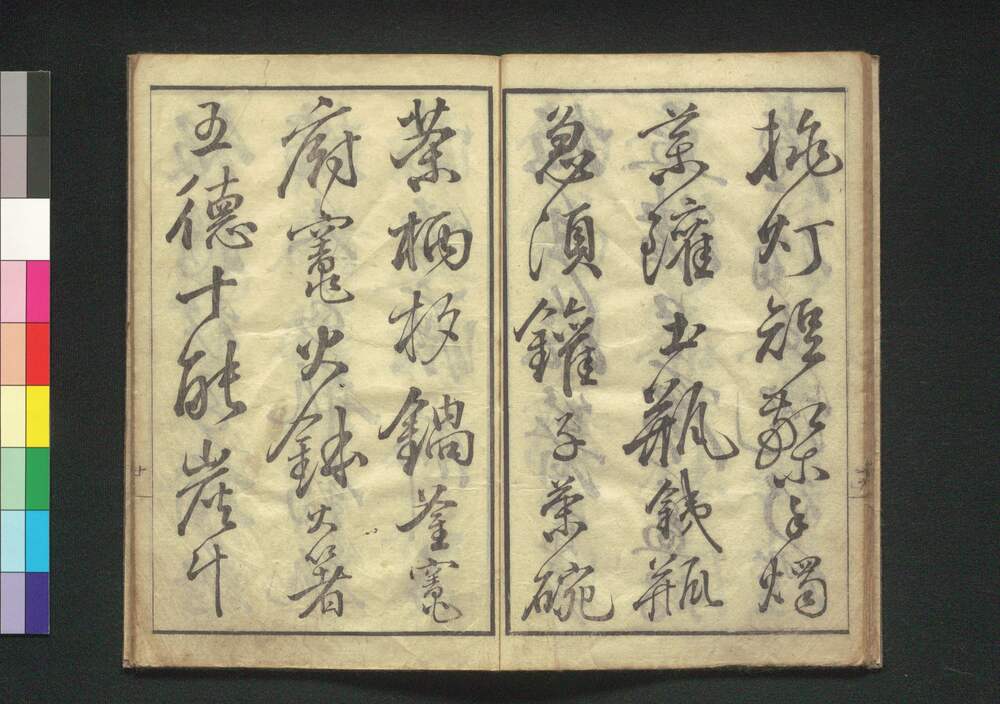 挑灯短檠手燭
薬鑵土瓶銕瓶
急須鑵子茶碗
茶柄杓鍋釜竈
廚竈火鉢火箸
五徳十能炭斗